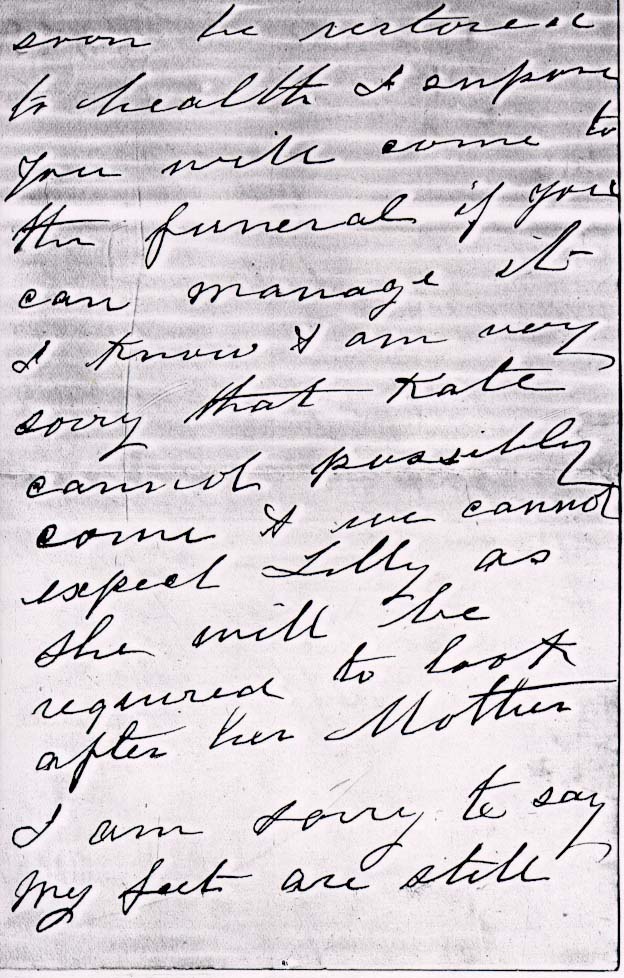 soon be restored
to health I supose
you will come to
the funeral if you
can manage it
I know & am very
sorry that Kate
cannot possibly
come & we cannot
expect Lilly as
she will be
required to look
after her Mother
I am sorry to say
my feet are still